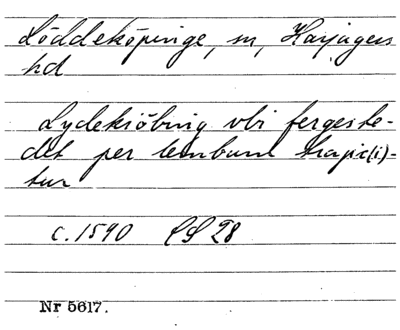 Löddeköpinge, sn, Harjagers
hd
Lydekiöbnig vbi fergeste-
det per lembum trajic(i)-
tur
c. 1590 LS 28
Nr 5617.